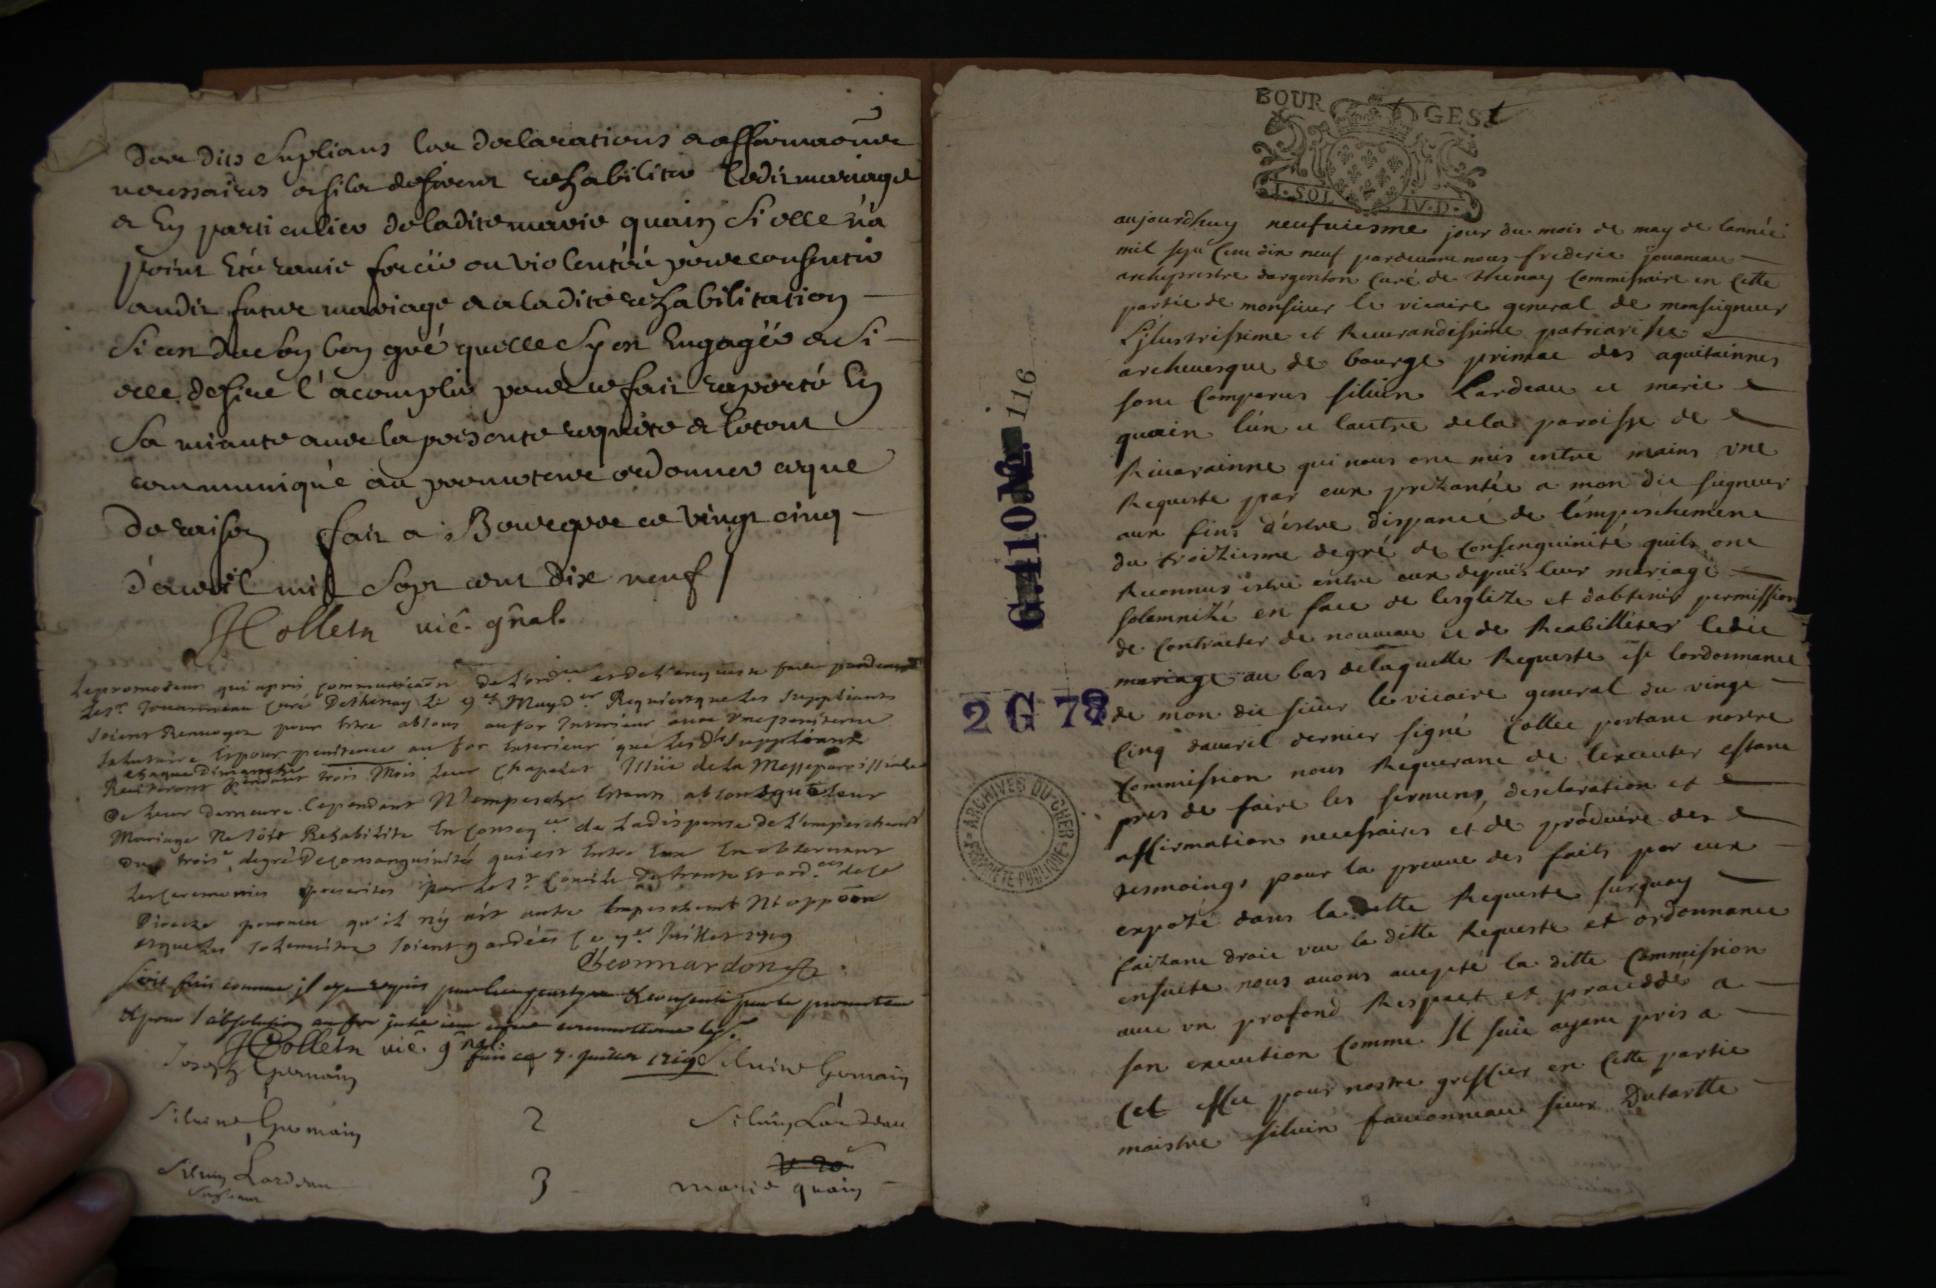 des dits suplians les declarations & affirmaons
necessaires & sils desirent rehabiliter ledit mariage
& en particulier de ladite marie quain si elle n'a
point eté ravie forcée ou violentée pour consentir
audit futur mariage & a la dite rehabilitation
si c'en de son bon gré quelle s'y est engagée & si
elle desire l'acomplir pour ce fait raporté en
sa minute avec la presente requete & le tout
communiqué au promoteur ordonner ce que
de raison fait a Bourges ce vingt cinq
d'avril mil sept cent dix neuf
Collein vic. gnal.
Le promoteur qui a pris communicaon de l'ord. et de l'enqueste faite pardevant
Le sr. Jouanneau Curé de thenay Le 9 May Requiers que Les suppliants
soient Renvoyez pour estre absous au for Interieur avec une penitence
salutaire Et pour penitence au for Exterieur que les ds suppliants
chaque dimanche
Reciteront pendant trois Mois Leur Chapelet Issüe de La Messe parroissiale
De Leur demeure. Cependant N'empesche Estants absous que Leur
Mariage Ne soit Rehabilité En conseq. de La dispense de L'empeschement
du trois. degré De consanguinité qui est Entre Eux En observant
Les ceremonies prescrites par Le st. Concile De trente Et ord. de ce
Dioceze pourveu qu'il n'y ait autre Empeschemt Ni oppoon
Et que Les solemnités soient gardées Ce 7 Juillet 1719
Geonnardon
soit fait comme il est requis & consenti par le promoteur
& pour l'absolution au for
Collein vic. gnal.
fait ce 7. Juillet 1719
Joseph Germain
Silvine Germain
Silvine Germain
2
Silvin Lardeau
Silvin Lardeau
3
marie quain
BOURGES
I·SOL IV·D·
aujourdhuy neufuiesme jour du mois de may de lannée
mil sept Cent dix neuf pardevant nous frederic jouaneau
archiprestre dargenton Curé de thenay Commissaire en Cette
partie de monsieur le vicaire general de monseigneur
L'ilustrissime et Reverandissime patriarche
archevesque de bourge primat des aquitainnes
sont Comparus silvin Lardeau et marie
quain l'un et lautre dela paroisse de
Rivarainne qui nous ont mis entre mains une
Requeste par eux prezantée a mon dit seigneur
aux fins d'estre dispancé de l'empeschement
du troizieme degré de Consenguinité quils ont
Reconnus estre entre eux depuis leur mariage
solemnizé en face de lesglize et dobtenir permission
de Contracter de nouveau et de Reabilliter ledit
mariage au bas delaquelle Requeste est lordonnance
de mon dit sieur le vicaire general du vingt
Cinq d'avril dernier signé Collet portant nostre
Commission nous Requerant de lexecuter estant
pres de faire les sermens, desclaration et
affirmation necessaires et de produire des
tesmoings pour la preuve des faits par eux
expozé dans la ditte Requeste surquoy
faizant droit veu la ditte Requeste et ordonnance
ensuite nous avons accepté la ditte Commission
avec un profond Respaet et proceddé a
son execution Comme Il suit ayant pris a
Cet effet pour nostre greffier en Cette partie
maistre silvin fauconneau sieur Dutartte
G. 110
116
2 G 78
ARCHIVES DU CHER
PROPRIÉTÉ PUBLIQUE